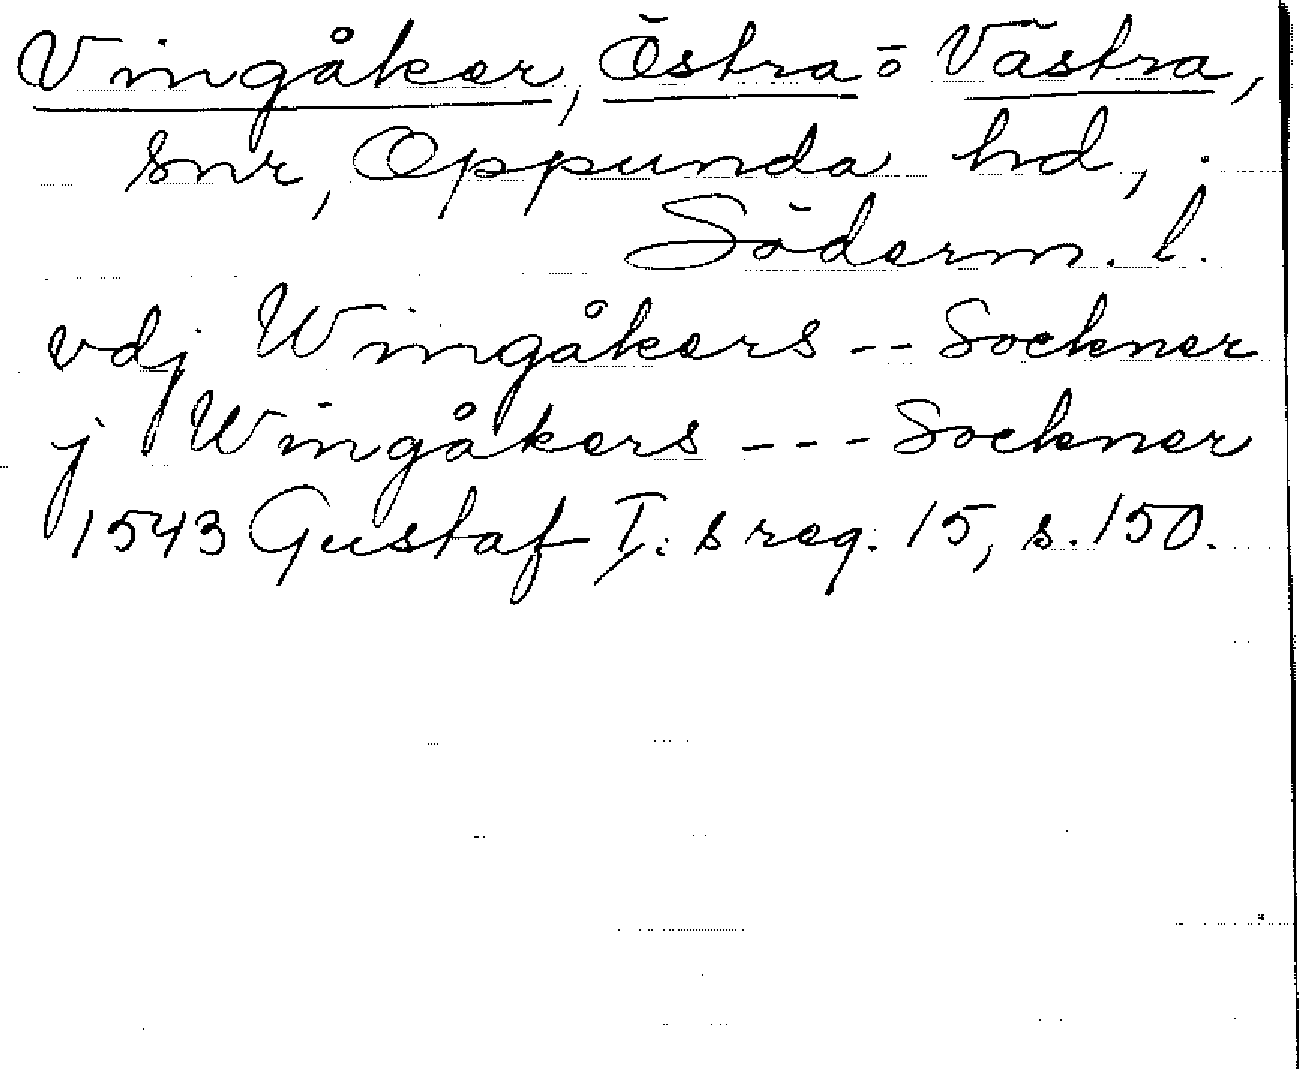 Vingåker, Östra o Västra,
snr, Oppunda hd,
Söderm. l.
vdj Wingåkers -- Sockner
j Wingåkers --- Sockner
1543 Gustaf I:s reg. 15, s. 150.